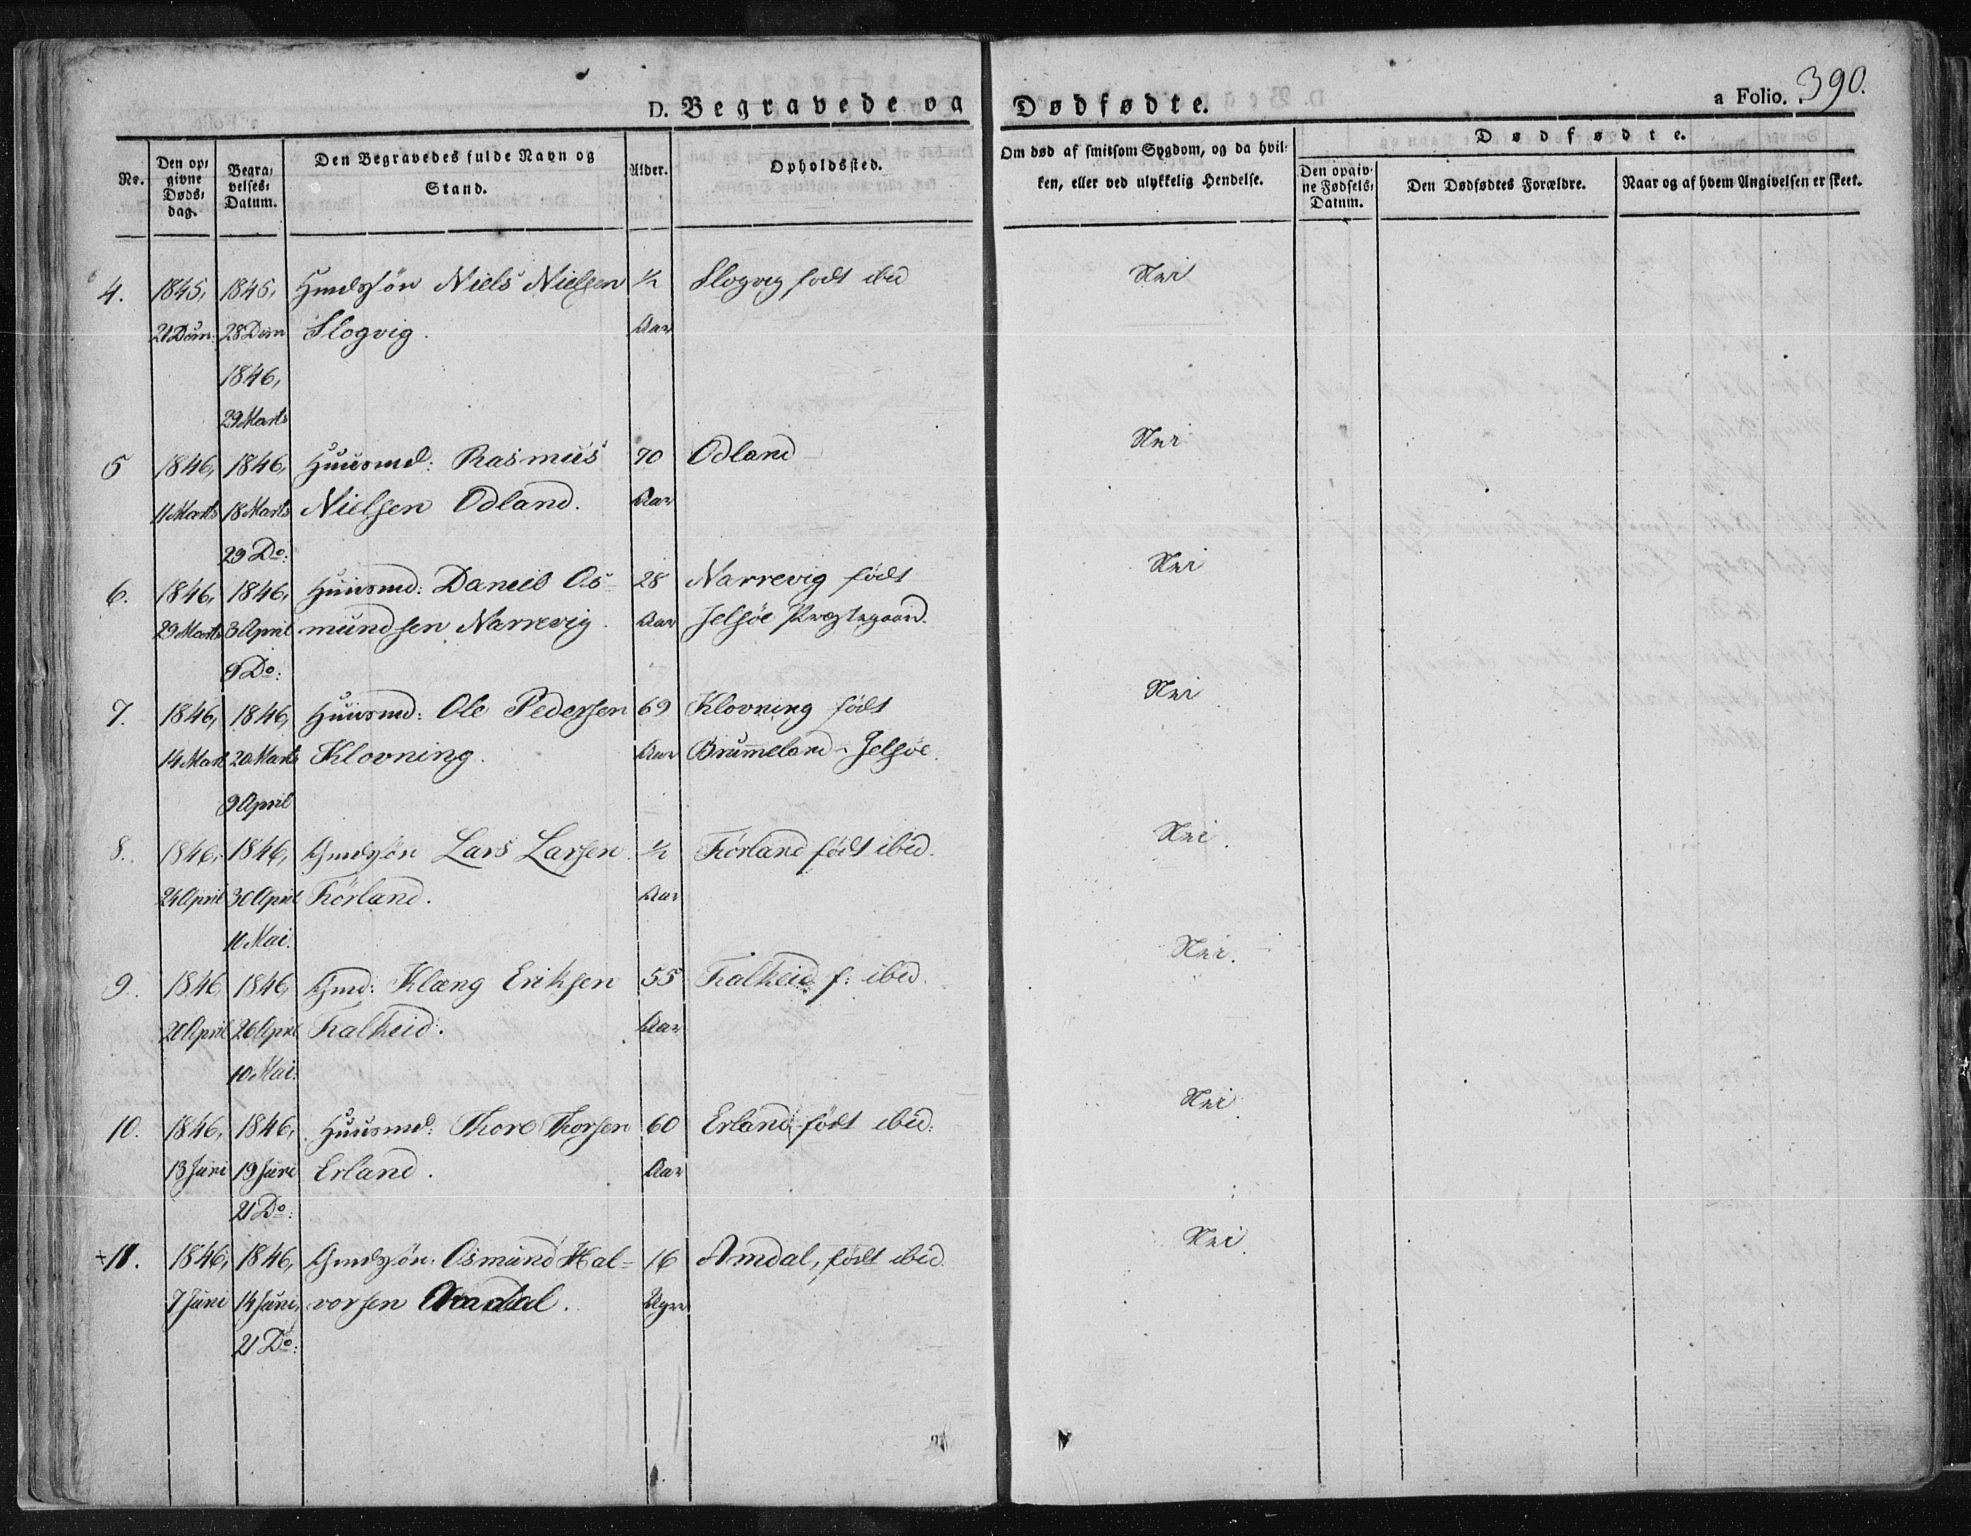 D. Begravede og Dødfødte.
a Folio. 390.
No.
Den opgivne Dødsdag.
Begravelses-Datum.
Den Begravedes fulde Navn og Stand.
Alder.
Opholdssted.
Om død af smitsom Sygdom, og da hvilken, eller ved ulykkelig Hendelse.
Dødfødte.
Den opgivne Fødsels-Datum.
Den Dødfødtes Forældre.
Naar og af hvem Angivelsen er skeet.
4. 1845, 1845, Gmdssøn Niels Nielsen ½ Slogvig født ibid Nei
28 Slogvig. Aar
1846,
29 Marts
5 1846, 1846, Huusmd: Rasmus 70 Odland Nei
11 Marts 18 Marts Nielsen Odland. Aar
29 Do:
6. 1846, 1846, Huusmd: Daniel Os- 28 Narrevig født Nei
29 Marts 3 April mundsen Narrevig. Aar Jelsøe Præstegaard.
9 Do:
7. 1846, 1846, Huusmd: Ole Pedersen 69 Klovning født Nei
14 Mart 20 Marts Klovning. Aar Brummeland - Jelsøe.
9 April
8. 1846, 1846, Gmdssøn Lars Larsen ½ Førland født ibid. Nei.
24 April 30 April Førland. Aar
10 Mai.
9. 1846, 1846, Gmd: Klæng Eriksen 55 Falkeid f: ibid. Nei.
20 April 26 April Falkeid. Aar
10 Mai.
10. 1846, 1846, Huusmd: Thore Thorsen 60 Erland, født ibid. Nei.
13 Juni 19 Juni Erland. Aar
21 Do:
+11. 1846, 1846, Gmdssøn: Osmund Hal- 16 Amdal, født ibid. Nei.
7 Juni 14 Juni, vorsen Amdal.
21 Do: